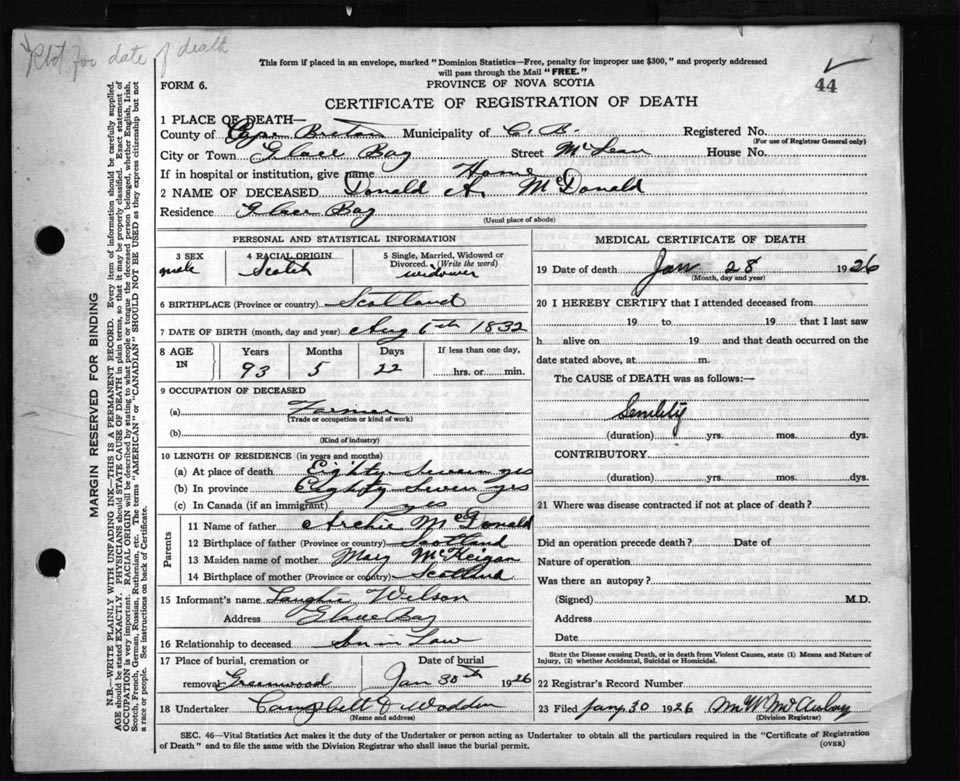 Rtd for date of death
This form if placed in an envelope, marked "Dominion Statistics—Free, penalty for improper use $300," and properly addressed
will pass through the Mail "FREE."
FORM 6.
PROVINCE OF NOVA SCOTIA
44
CERTIFICATE OF REGISTRATION OF DEATH
1 PLACE OF DEATH—
County of Cape Breton Municipality of C. B. Registered No.
(For use of Registrar General only)
City or Town Glace Bay Street McLean House No.
If in hospital or institution, give name Home
2 NAME OF DECEASED Donald A. McDonald
Residence Glace Bay
(Usual place of abode)
PERSONAL AND STATISTICAL INFORMATION
3 SEX 4 RACIAL ORIGIN 5 Single, Married, Widowed or
Divorced. (Write the word)
male Scotch widower
6 BIRTHPLACE (Province or country) Scotland
7 DATE OF BIRTH (month, day and year) Aug 6th 1832
8 AGE IN Years Months Days If less than one day,
93 5 22 hrs. or min.
9 OCCUPATION OF DECEASED
(a) Farmer
(Trade or occupation or kind of work)
(b)
(Kind of industry)
10 LENGTH OF RESIDENCE (in years and months)
(a) At place of death Eighty Seven yrs
(b) In province Eighty Seven yrs
(c) In Canada (if an immigrant) yrs
Parents
11 Name of father Archie McDonald
12 Birthplace of father (Province or country) Scotland
13 Maiden name of mother Mary McKeigan
14 Birthplace of mother (Province or country) Scotland
15 Informant's name Wilson
Address Glace Bay
16 Relationship to deceased Son in Law
17 Place of burial, cremation or Date of burial
removal Greenwood Jan 30th 1926
18 Undertaker Campbell & Wadden
(Name and address)
MEDICAL CERTIFICATE OF DEATH
19 Date of death Jan 28 1926
(Month, day and year)
20 I HEREBY CERTIFY that I attended deceased from
19 to 19 that I last saw
h alive on 19 and that death occurred on the
date stated above, at m.
The CAUSE of DEATH was as follows:—
Senility
(duration) yrs. mos. dys.
CONTRIBUTORY
(duration) yrs. mos. dys.
21 Where was disease contracted if not at place of death?
Did an operation precede death? Date of
Nature of operation
Was there an autopsy?
(Signed) M.D.
Address
Date
State the Disease causing Death, or in death from Violent Causes, state (1) Means and Nature of
Injury, (2) whether Accidental, Suicidal or Homicidal.
22 Registrar's Record Number
23 Filed Jany 30 1926 M. W. McAulay
(Division Registrar)
SEC. 46—Vital Statistics Act makes it the duty of the Undertaker or person acting as Undertaker to obtain all the particulars required in the "Certificate of Registration
of Death" and to file the same with the Division Registrar who shall issue the burial permit.
(OVER)
MARGIN RESERVED FOR BINDING
N.B.—WRITE PLAINLY WITH UNFADING INK—THIS IS A PERMANENT RECORD. Every item of information should be carefully supplied.
AGE should be stated EXACTLY. PHYSICIANS should STATE CAUSE OF DEATH in plain terms, so that it may be properly classified. Exact statement of
OCCUPATION is very important. RACIAL ORIGIN will be described by stating to what people or tongue the deceased person belonged, whether English, Irish,
Scotch, French, German, Russian, Ruthenian, etc. The terms "AMERICAN" or "CANADIAN" SHOULD NOT BE USED as they express citizenship but not
a race or people. See instructions on back of Certificate.